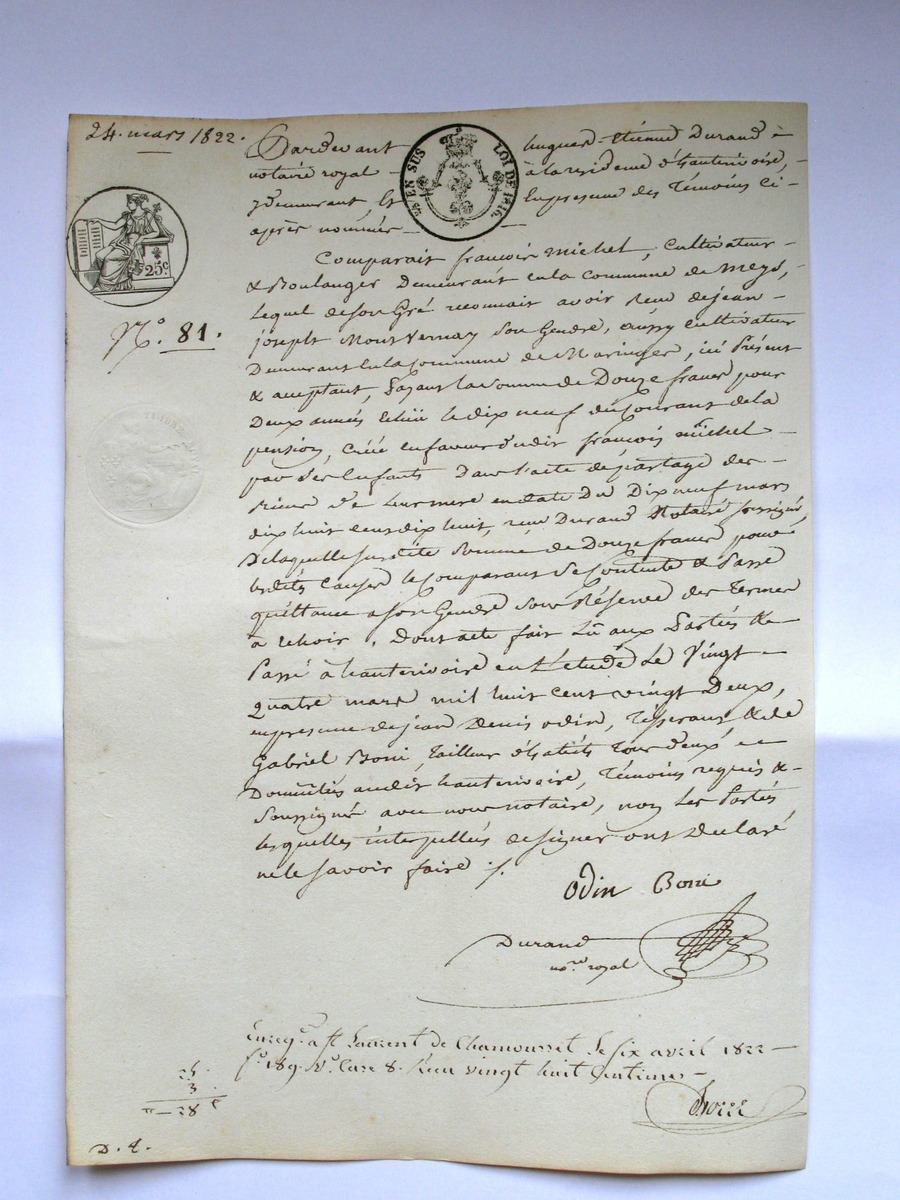 24. mars 1822.
Pardevant hugues Etienne Durand à
notaire royal à la residence d'hauterivoire,
y demeurant, et en presence des Temoins ci-
après nommés
EN SUS LOI DE 1816.
25c
N.o 81.
Comparait françois michel, Cultivateur
& Boulanger Demeurant en la Commune de Meys,
Lequel de son Gré reconnait avoir reçu de jean
joseph Mont Vernay son Gendre, aussy Cultivateur
Demeurant en la Commune de Maringes, ici Présent
& acceptant, La somme de Douze francs pour
Deux années échûe le dix neuf du Courant de la
pension, créé en faveur dudit françois michel
par ses Enfants Dans l'acte de partage des
Biens de Leur mere en date Du Dix neuf mars
dix huit cent dix huit, reçu Durand Notaire soussigné,
De laquelle susdite Somme de Douze francs pour
lesdites Causes le Comparant Se Contente & Passe
quittance a son Gendre sous Réserve des Termes
à échoir. Dont acte fait Lû aux Parties &
Passé à hauterivoire en L'etude Le Vingt
quatre mars mil huit cent vingt Deux,
en presence de jean Denis odin, & de
Gabriel Boni, Tailleur d'habits Tous deux
Domiciliés audit hauterivoire, Témoins requis &
Soussignés avec nous notaire, non les Parties
lesquelles interpellées de signer ont Declaré
ne le savoir faire ./.
Odin Boni
Durand
no.re royal
Enreg.é a St Laurent de Chamousset le six avril 1822
f.o 189 V.o Case 8. Reçu vingt huit Centimes
25
3
28
D. 4.